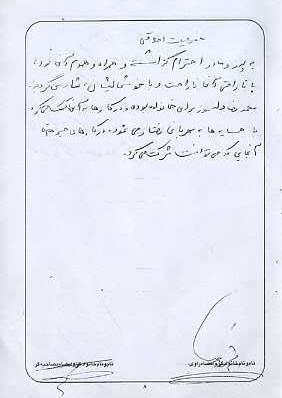 خصوصیات اخلاقی
به پدر و مادر احترام گذاشته و همراه و همدم آنان بود
با ناراحتی آنان ناراحت و با خوشحالیشان شاد می گردید
دلسوز برای خانواده بوده و در کارها به آنان کمک می کرد
با همسایه ها به مهربانی رفتار می نمود و در کارهای خیر حتی
آنجایی که می توانست شرکت می کرد.
۸